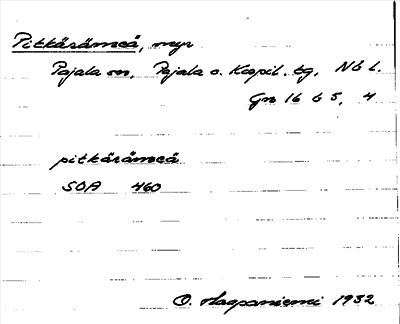 Pitkärämeä, myr
Pajala sn, Pajala o. Kspil. tg, Nb l.
Gn 16 b 5, 4
pitkärämeä
SOA 460
O. Haapaniemi 1932